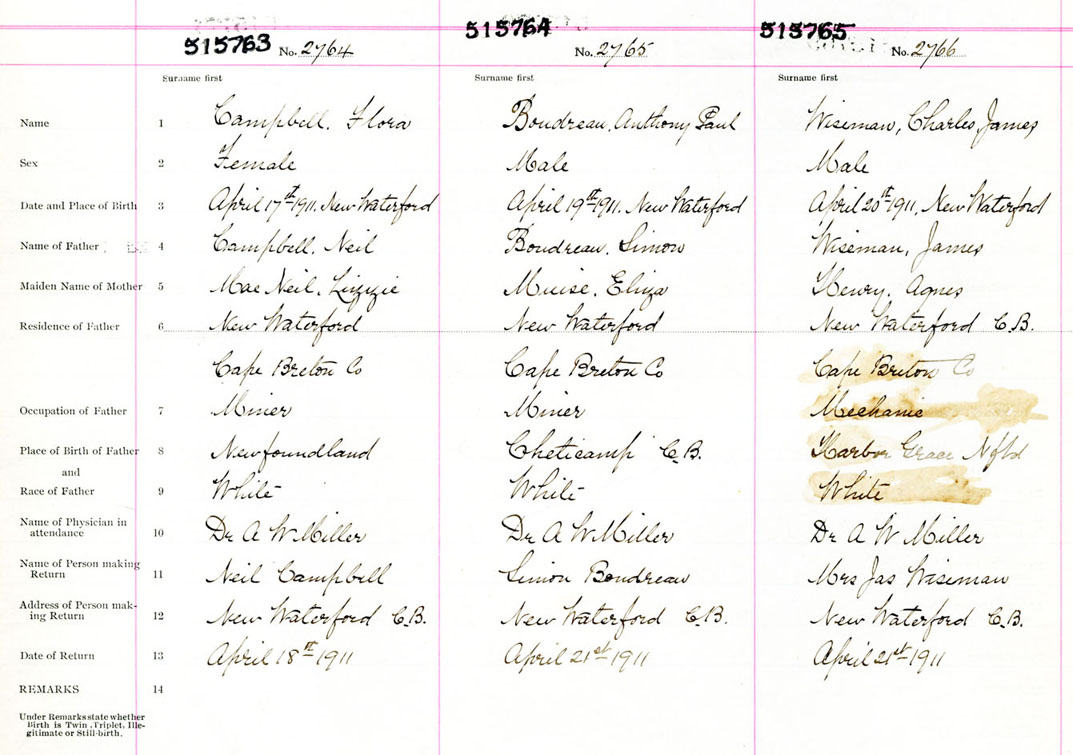 515763 No. 2764 515764 No. 2765 515765 No. 2766
Surname first Surname first Surname first
Name 1 Campbell, Flora Boudreau, Anthony Paul Wiseman, Charles James
Sex 2 Female Male Male
Date and Place of Birth 3 April 17th 1911, New Waterford April 19th 1911, New Waterford April 20th 1911, New Waterford
Name of Father 4 Campbell, Neil Boudreau, Simon Wiseman, James
Maiden Name of Mother 5 Mac Neil, Lizzie Muise, Eliza Henry, Agnes
Residence of Father 6 New Waterford New Waterford New Waterford C.B.
Cape Breton Co Cape Breton Co Cape Breton Co
Occupation of Father 7 Miner Miner Mechanic
Place of Birth of Father 8 Newfoundland Cheticamp C.B. Harbor Grace Nfld
and
Race of Father 9 White White White
Name of Physician in
attendance 10 Dr A W Miller Dr A W Miller Dr A W Miller
Name of Person making
Return 11 Neil Campbell Simon Boudreau Mrs Jas Wiseman
Address of Person mak-
ing Return 12 New Waterford C.B. New Waterford C.B. New Waterford C.B.
Date of Return 13 April 18th 1911 April 21st 1911 April 21st 1911
REMARKS 14
Under Remarks state whether
Birth is Twin, Triplet, Ille-
gitimate or Still-birth.